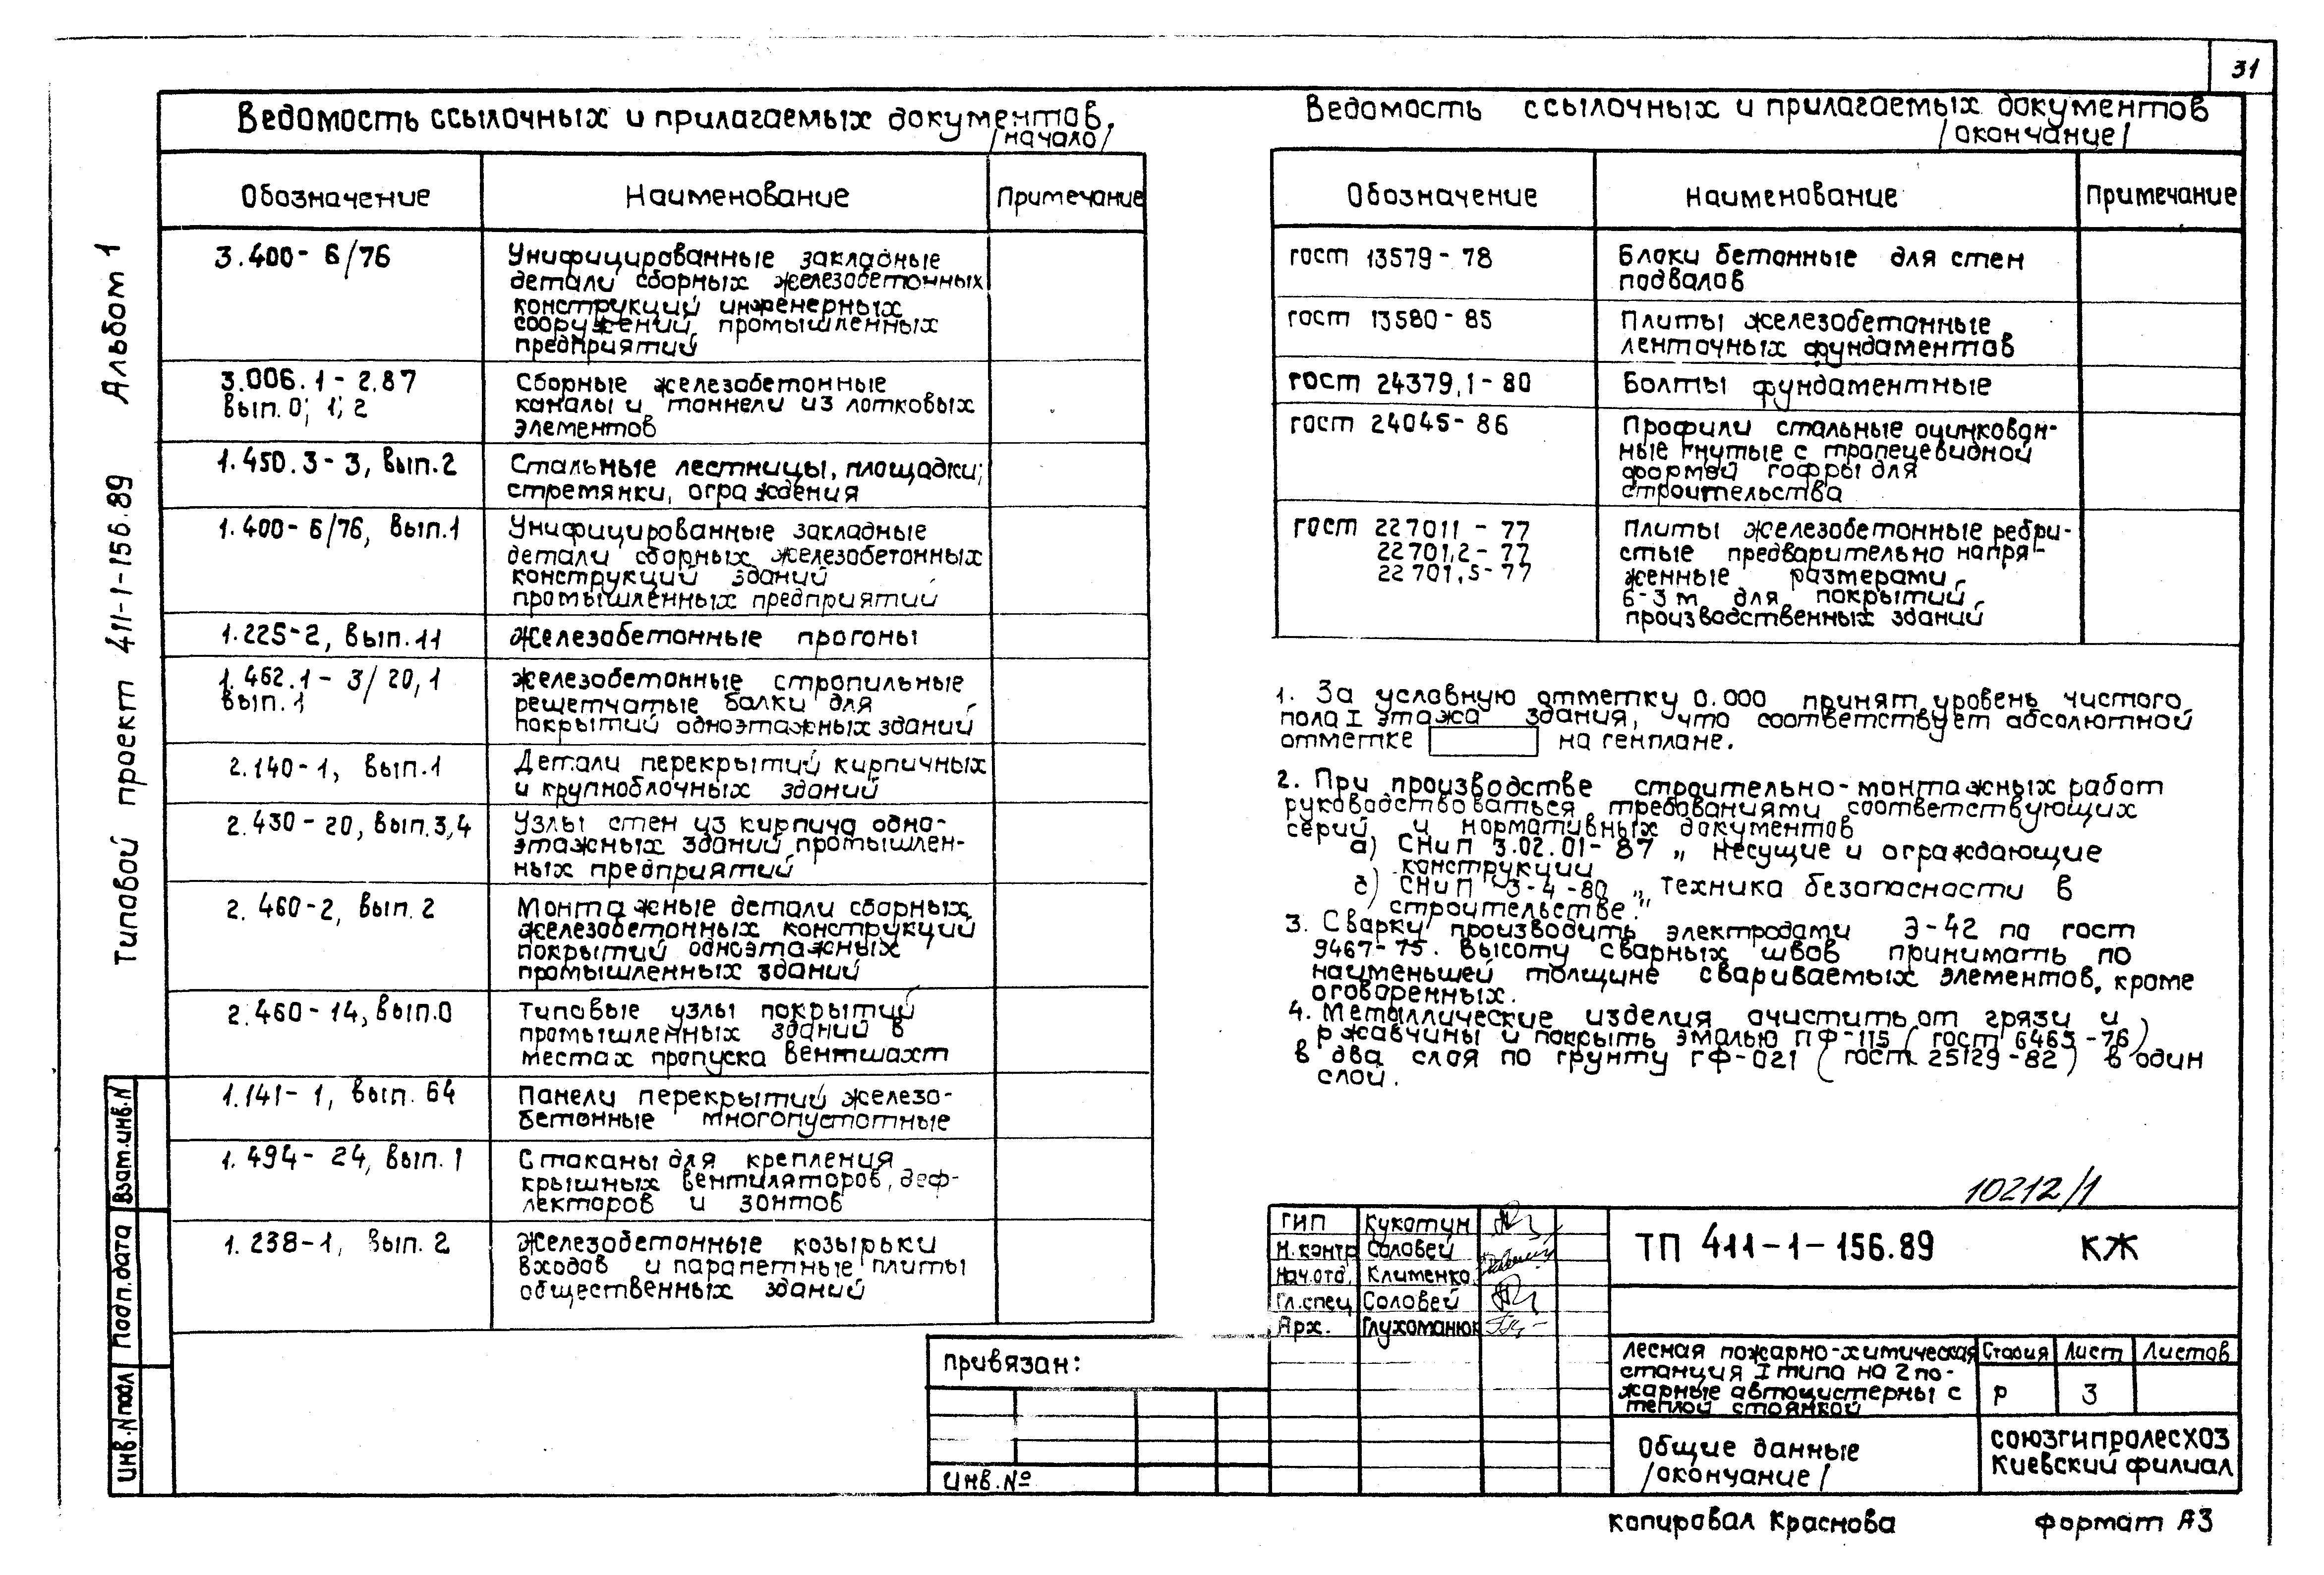 31
Ведомость ссылочных и прилагаемых документов.
/начало/
Обозначение Наименование Примечание
3.400-6/76 Унифицированные закладные
детали сборных железобетонных
конструкций инженерных
сооружений промышленных
предприятий
3.006.1-2.87 Сборные железобетонные
вып.0; 1; 2 каналы и тоннели из лотковых
элементов
1.450.3-3, вып.2 Стальные лестницы, площадки,
стремянки, ограждения
1.400-6/76, вып.1 Унифицированные закладные
детали сборных железобетонных
конструкций зданий
промышленных предприятий
1.225-2, вып.11 Железобетонные прогоны
1.462.1-3/20,1 Железобетонные стропильные
вып.1 решетчатые балки для
покрытий одноэтажных зданий
2.140-1, вып.1 Детали перекрытий кирпичных
и крупноблочных зданий
2.430-20, вып.3,4 Узлы стен из кирпича одно-
этажных зданий промышлен-
ных предприятий
2.460-2, вып.2 Монтажные детали сборных
железобетонных конструкций
покрытий одноэтажных
промышленных зданий
2.460-14, вып.0 Типовые узлы покрытий
промышленных зданий в
местах пропуска вентшахт
1.141-1, вып. 64 Панели перекрытий железо-
бетонные многопустотные
1.494-24, вып.1 Стаканы для крепления
крышных вентиляторов, деф-
лекторов и зонтов
1.238-1, вып. 2 Железобетонные козырьки
входов и парапетные плиты
общественных зданий
Ведомость ссылочных и прилагаемых документов
/окончание/
Обозначение Наименование Примечание
гост 13579-78 Блоки бетонные для стен
подвалов
гост 13580-85 Плиты железобетонные
ленточных фундаментов
гост 24379,1-80 Болты фундаментные
гост 24045-86 Профили стальные оцинкован-
ные гнутые с трапецевидной
формой гофры для
строительства
гост 227011-77 Плиты железобетонные ребри-
22701,2-77 стые предварительно напря-
22701,5-77 женные размерами
6-3м для покрытий
производственных зданий
1. За условную отметку 0.000 принят уровень чистого
пола I этажа здания, что соответствует абсолютной
отметке на генплане.
2. При производстве строительно-монтажных работ
руководствоваться требованиями соответствующих
серий и нормативных документов
а) СНиП 3.02.01-87 „ Несущие и ограждающие
конструкции
б) СНиП 3-4-80 „ техника безопасности в
строительстве."
3. Сварку производить электродами Э-42 по гост
9467-75. Высоту сварных швов принимать по
наименьшей толщине свариваемых элементов, кроме
оговоренных.
4. Металлические изделия очистить от грязи и
ржавчины и покрыть эмалью ПФ-115 (гост 6465-76)
в два слоя по грунту гф-021 (гост 25129-82) в один
слой.
10212/1
Типовой проект 411-1-156.89 Альбом 1
Взат.инв.N
Подп.дата
инв.Nподл
ГИП Кукотин
Н.контр Соловей
Нач.отд. Клименко
Гл.спец Соловей
Арх. Глухоманюк
ТП 411-1-156.89 КЖ
лесная пожарно-химическая
станция I типа на 2 по-
жарные автоцистерны с
теплой стоянкой
Стадия Лист Листов
р 3
Общие данные
/окончание/
союзгипролесхоз
Киевский филиал
привязан:
Инв.№
копировал Краснова формат А3